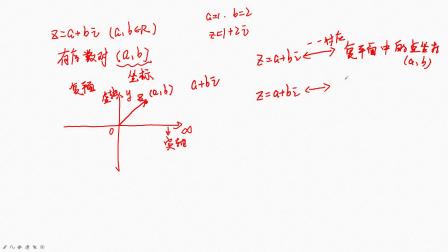 z=a+bi (a,b∈R)
a=1. b=2
z=1+2i
有序数对 (a,b)
坐标
z=a+bi ⟷ 复平面中的点坐标
一一对应
(a,b)
y z (a,b)
a+bi
z=a+bi ⟷
0
x
实轴